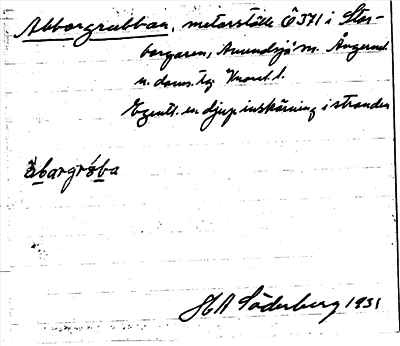 Abborgrubban, metarställe Ö 371 i Stor-
borgaren, Anundsjö sn. Ångerml.
n. doms. tg
Egentl. en djup inskärning i stranden
abårgröba
SGA Söderberg 1931